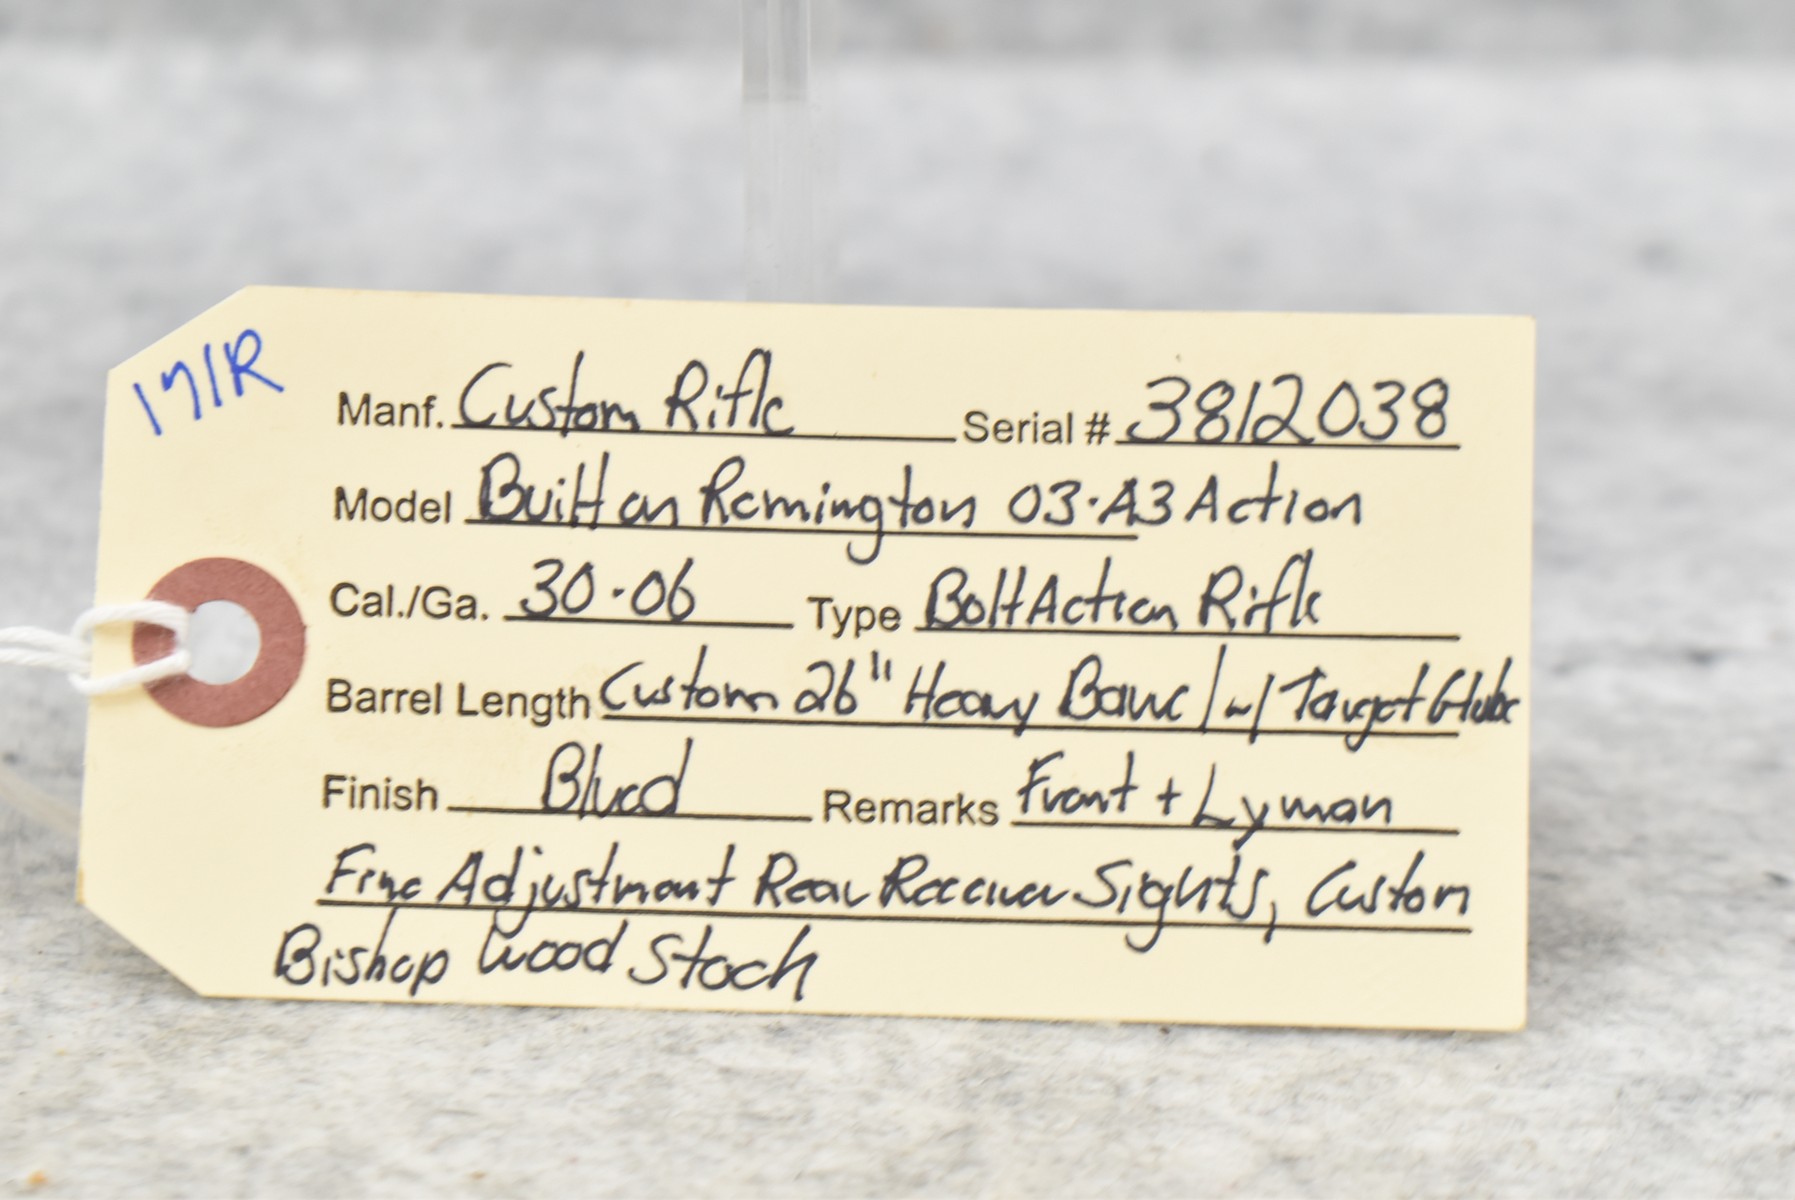 171R
Manf. Custom Rifle Serial # 3812038
Model Built on Remington 03-A3 Action
Cal./Ga. 30-06 Type Bolt Action Rifle
Barrel Length Custom 26" Heavy Barrel w/ Target Globe
Finish Blued Remarks Front + Lyman
Fine Adjustment Rear Receiver Sights, Custom
Bishop Wood Stock